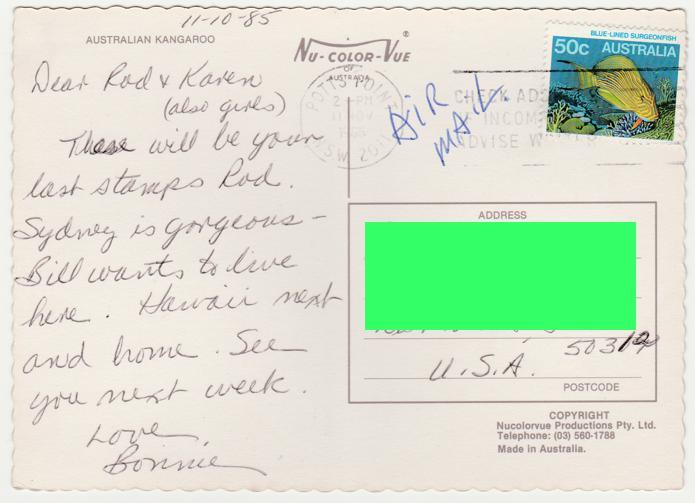 11-10-85
AUSTRALIAN KANGAROO
NU-COLOR-VUE
OF
AUSTRALIA
Dear Rod & Karen
(also girls)
These will be your
last stamps Rod.
Sydney is gorgeous -
Bill wants to live
here. Hawaii next
and home. See
you next week.
Love,
Bonnie
POTTS POINT
2 - PM
11 NOV
NSW 2011
AIR
MAIL
CHECK
INCOM
ADVISE
BLUE-LINED SURGEONFISH
50c AUSTRALIA
ADDRESS
U.S.A.
POSTCODE
COPYRIGHT
Nucolorvue Productions Pty. Ltd.
Telephone: (03) 560-1788
Made in Australia.